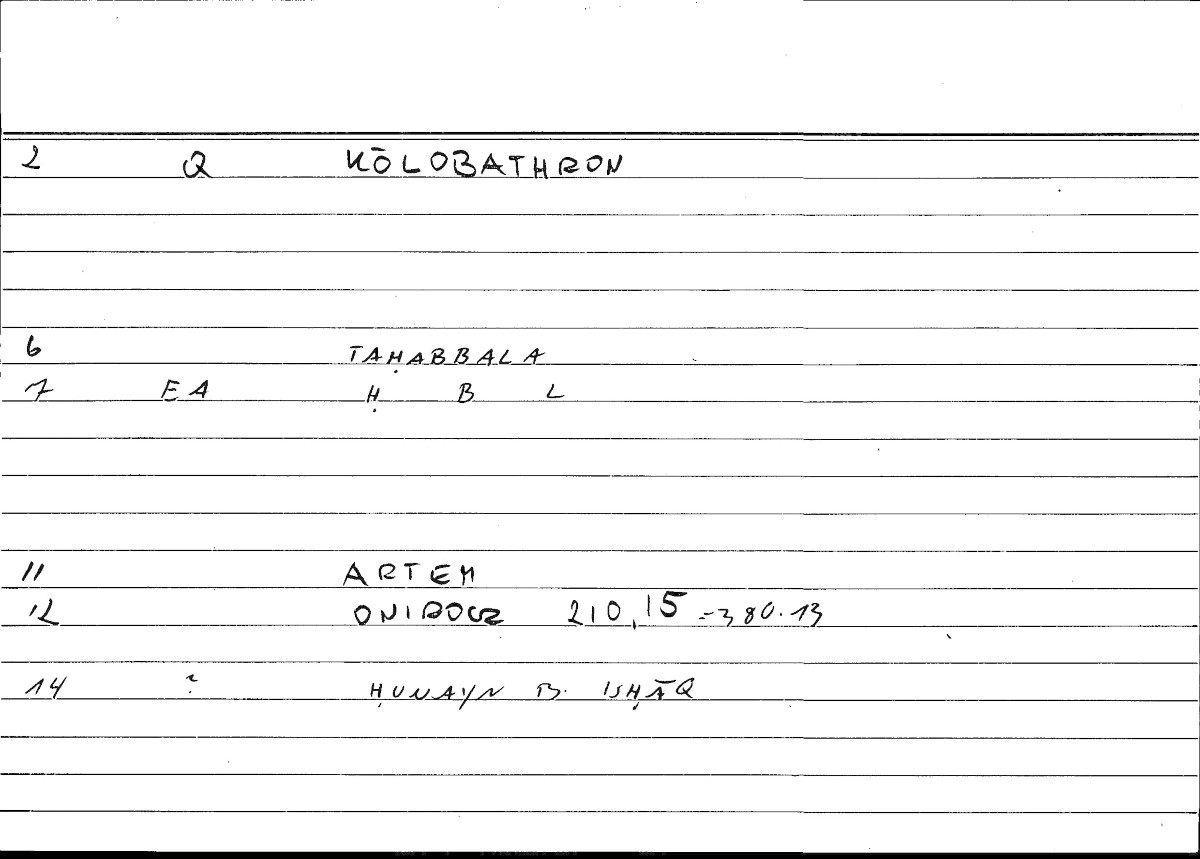 2 Q KŌLOBATHRON
6 TAḤABBALA
7 EA Ḥ B L
11 ARTEM
12 ONIROCR 210,15 = 380.13
14 ? ḤUNAYN B. ISḤĀQ